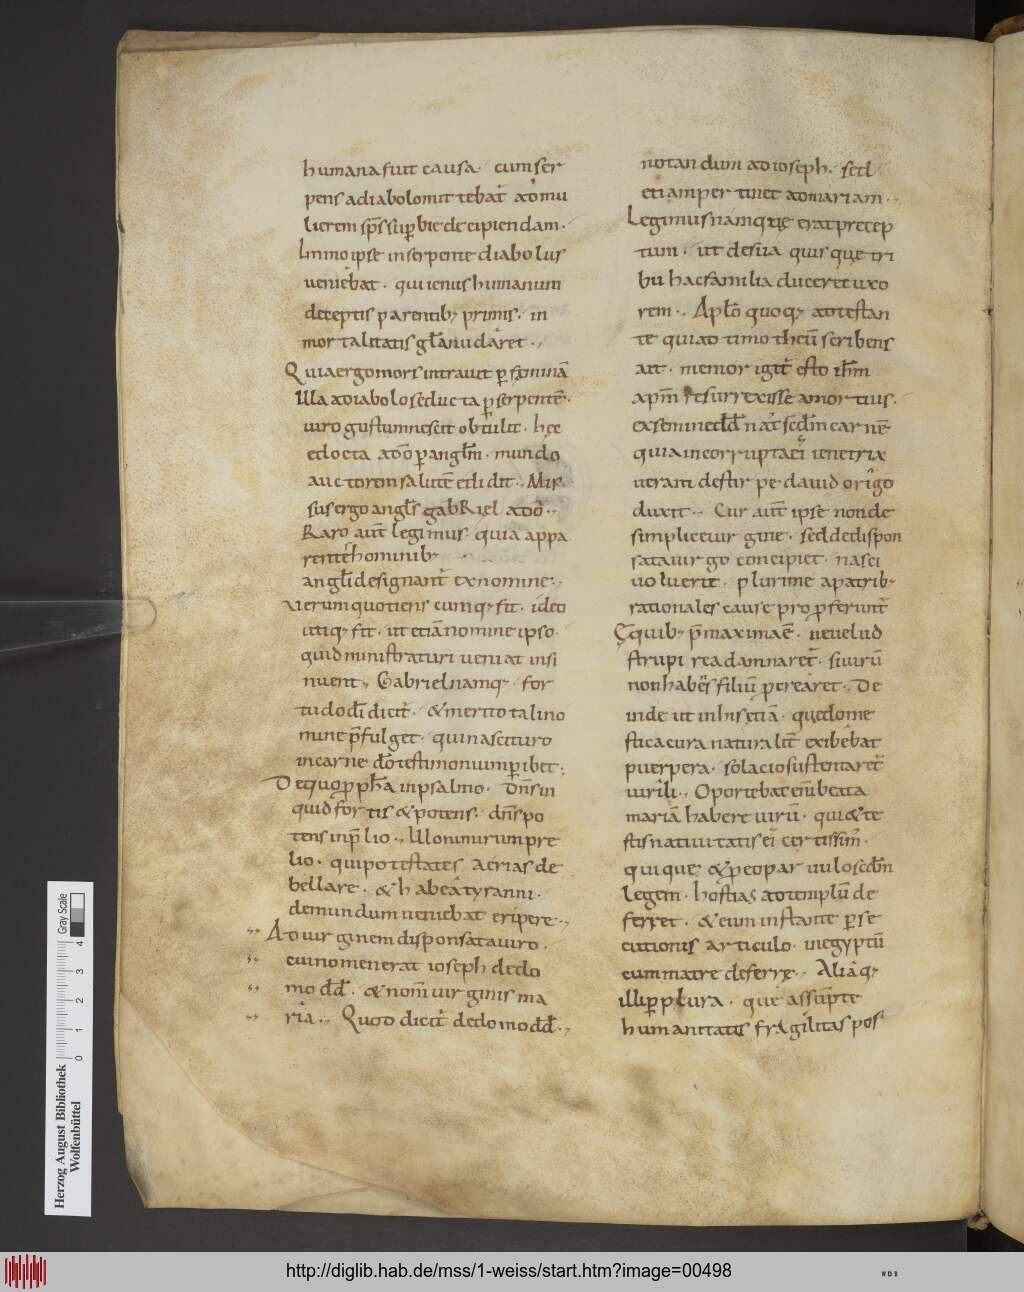 humana fuit causa· cum ser
pens a diabolo mittebat̃ ad mu
lierem sp̃s superbie decipiendam·
Immo ipse in serpente diabolus
veniebat· qui ienus humanum
deceptis parentib; primis· in
mortalitatis gl̃a nudaret·,
Quia ergo mors intravit p feminã
Illa a diabolo seducta p serpentẽ·
viro gustum nescit obtulit· hęc
edocta a dõ p anglm̃· mundo
auctorem salutẽ edidit·, Mis
sus ergo angls̃ gabRiel a dõ·,
Raro aut̃ legimus· quia appa
rentes hominib;
angli designant̃ ex nomine·,
Verum quotiens cumq; fit· ideo
utiq; fit· ut etiã nomine ipso·
quid ministraturi veniat insi
nuent·, Gabriel namq; for
tudo dĩ dicit̃· & merito tali no
mine p̃fulget· qui nascituro
in carne dõ testimonium p̱ibet·,
De quo p pph̃a in psalmo· Dñs in
quid fortis & potens· dñs po
tens in p̃lio·, Illo nimirum pre
lio· qui potestates aerias de
bellare· & habeâ tyranni·
de mundum veniebat eripere·,
Ad virginem disponsata viro·
cui nomen erat ioseph de do
mo dd̃· & nom̃ virginis ma
ria·, Quod dicit̃ de domo dd̃·,
notandum ad ioseph· sed
etiam pertinet ad mariam·,
Legimus namq; que erat precep
tum· ut de sua quisque tri
bu hac familia duceret uxo
rem·, Apl̃o quoq; adtestan
te qui ad timotheũ scribens
ait· memor igit̃ esto ihm̃
xpm̃ resurrexisse a mortuis·
ex semine dd̃ nat̃ scd̃m carnẽ·
quia incorrupta eĩ ienetrix
veram de stirpe david origo
duxit·, Cur aut̃ ipse non de
simplice virgine· sed de dispon
sata virgo concipiet· nasci
voluerit· plurime a patrib;
rationales cause pro p̱ferunt̃
E quib; p̃maxima ẽ· ne velud
strupi rea damnaret̃· si virũ
non habẽs filiũ pcreâret·, De
inde ut in his etiã· que dome
stica cura naturalit̃ exibêbat
puerpera· solacio sustentaret̃
virili·, Oportebat eñ beata
mariã habere virũ· qui & te
stis nativitatis eĩ certissim̃·
qui que; & p eo parvulo scd̃m
legem· hostias ad templũ de
ferret· & eum instante pse
cutionis articulo· in egyptũ
cum matre deferre·, Aliâq;
illi p plura· que assũpte
humanitatis fragilitas pos
Herzog August Bibliothek
Wolfenbüttel
Gray Scale
0 1 2 3 4
http://diglib.hab.de/mss/1-weiss/start.htm?image=00498